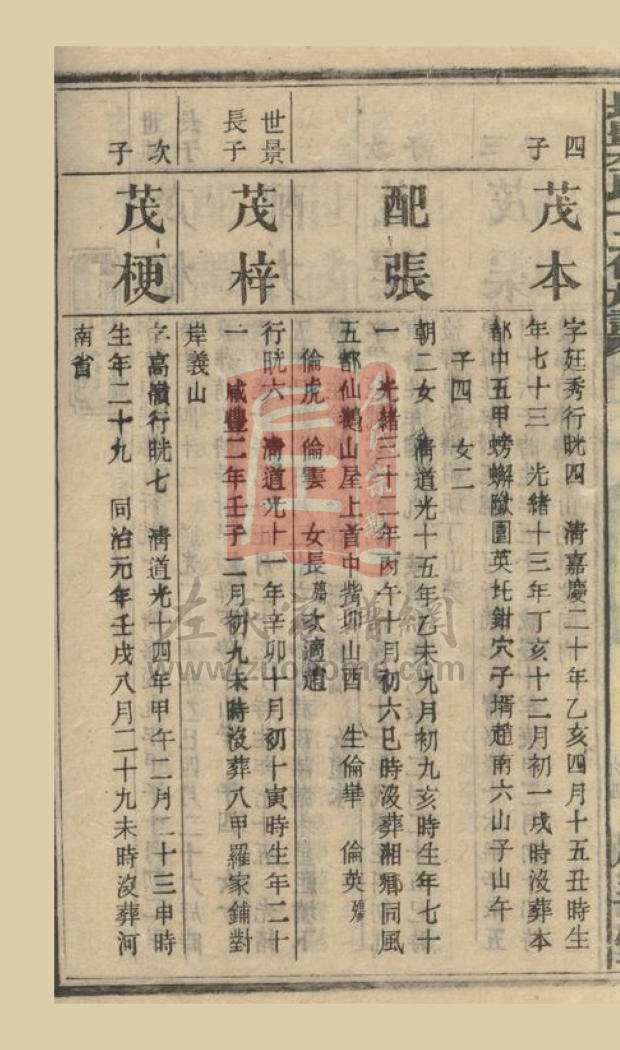 四子
茂本
字廷秀行晄四 淸嘉慶二十年乙亥四月十五丑時生
年七十三 光緒十三年丁亥十二月初一戌時沒葬本
都中五甲螃蠏 圍英 鉗穴子壻趙南六山子山午
子四 女二
配張
朝二女 淸道光十五年乙未九月初九亥時生年七十
一 光緒三十二年丙午十月初六巳時沒葬湘鄉同風
五都仙鵝山屋上首中 卯山酉 生倫 倫英殤
倫虎 倫雲 女長殤次適趙
世景長子
茂梓
行晄六 淸道光十一年辛卯十月初十寅時生年二十
一 咸豐二年壬子二月初九未時沒葬八甲羅家鋪對
岸義山
次子
茂梗
字高嶺行晄七 淸道光十四年甲午二月二十三申時
生年二十九 同治元年壬戌八月二十九未時沒葬河
南省
左氏家譜網
www.zuojiome.com